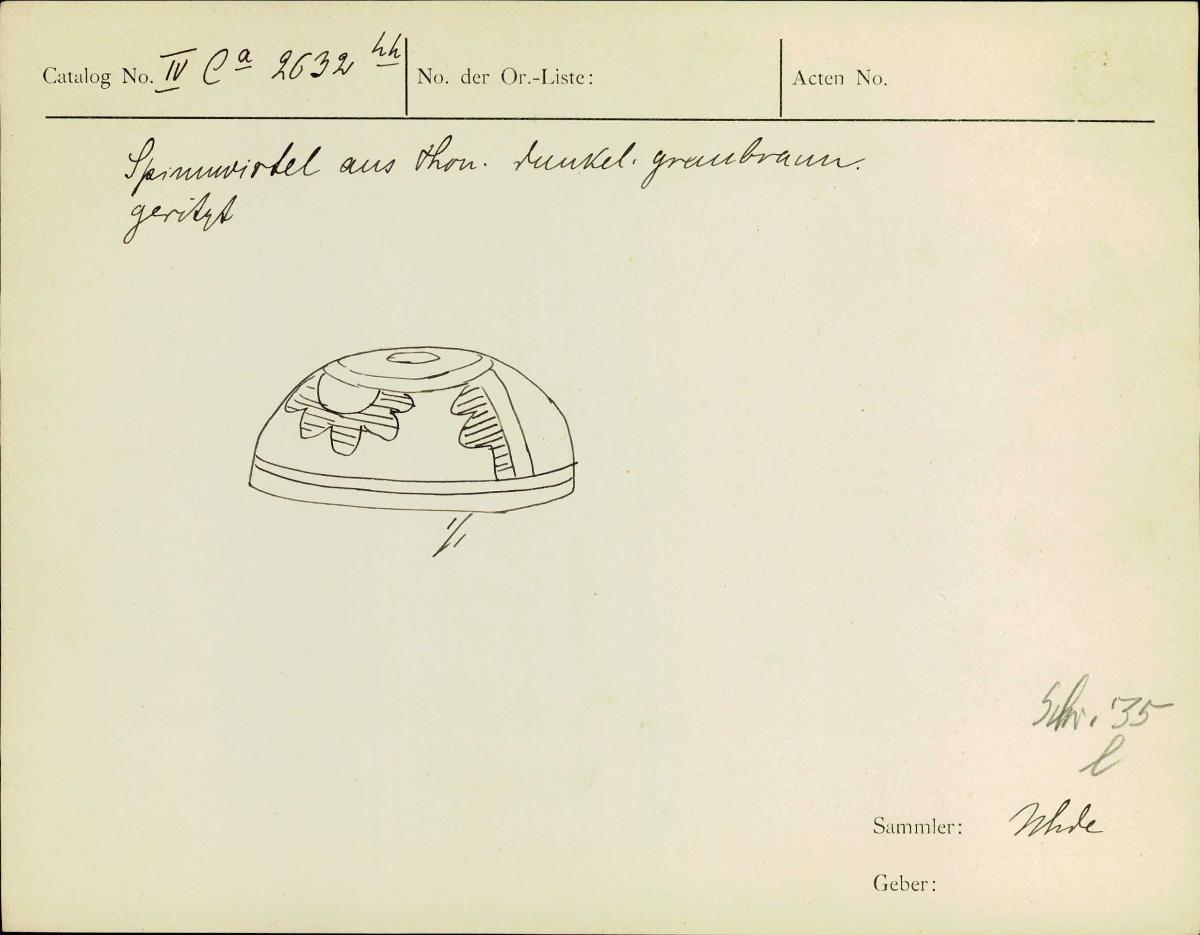 Catalog No. IV Ca 2632 hh
No. der Or.-Liste:
Acten No.
Spinnwirtel aus Thon. dunkel. graubraun.
geritzt
1/1
Schr. 35
l
Sammler: Uhde
Geber: